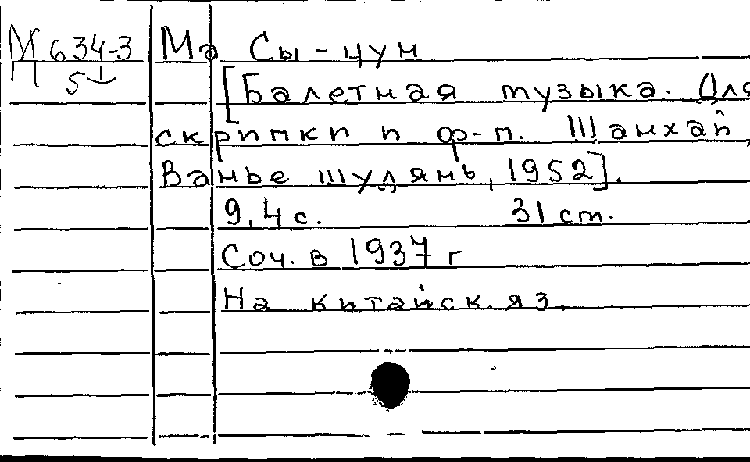 М 634-3 Ма Сы-цун
П 5
[Балетная музыка. Для
скрипки и ф-п. Шанхай,
Ванье шулянь, 1952].
9, 4 с. 31 cm.
Соч. в 1937 г
На китайск. яз.